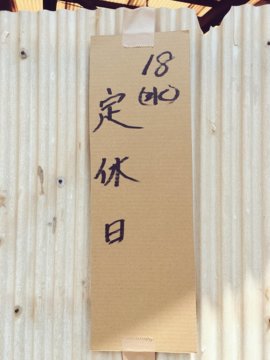 18
(水)
定休日